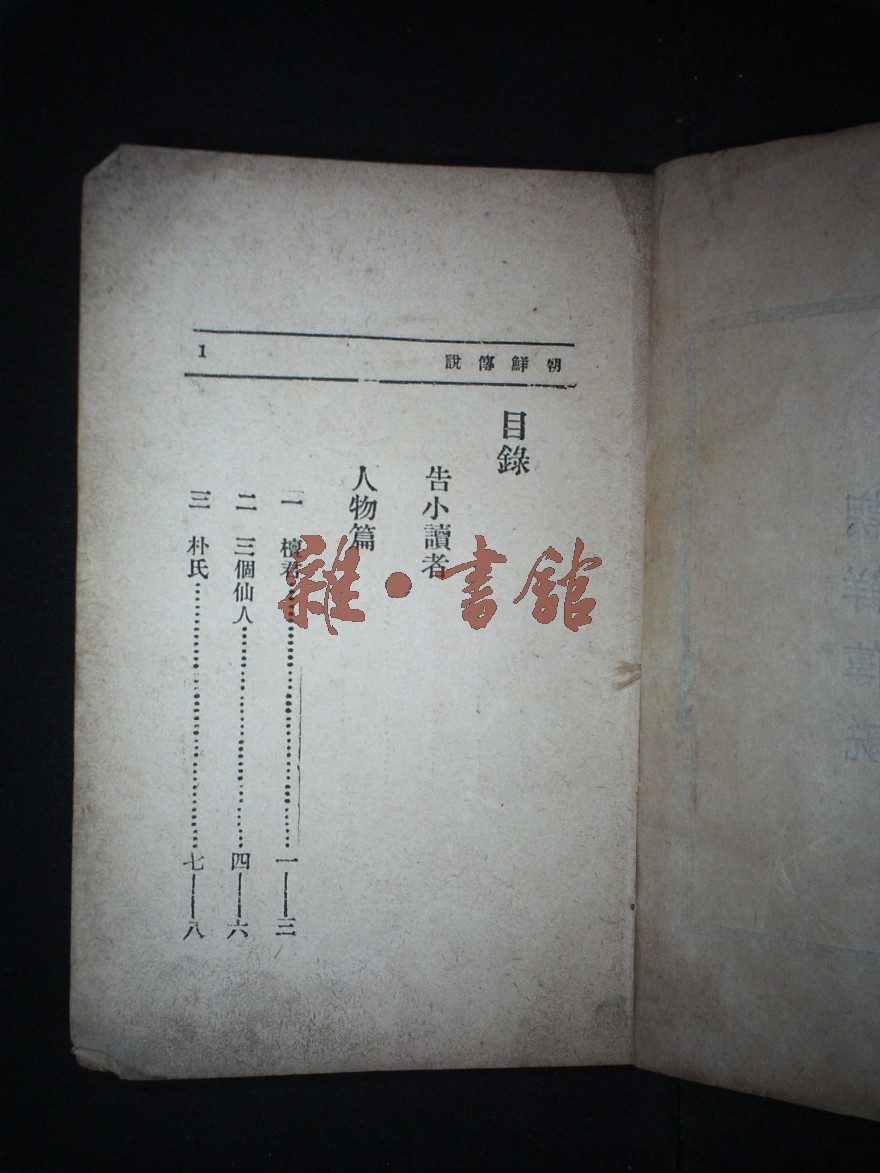 朝鮮傳說
1
目錄
告小讀者
人物篇
一 檀君……………一——三
二 三個仙人……………四——六
三 朴氏……………七——八
雜·書館
朝鮮傳說